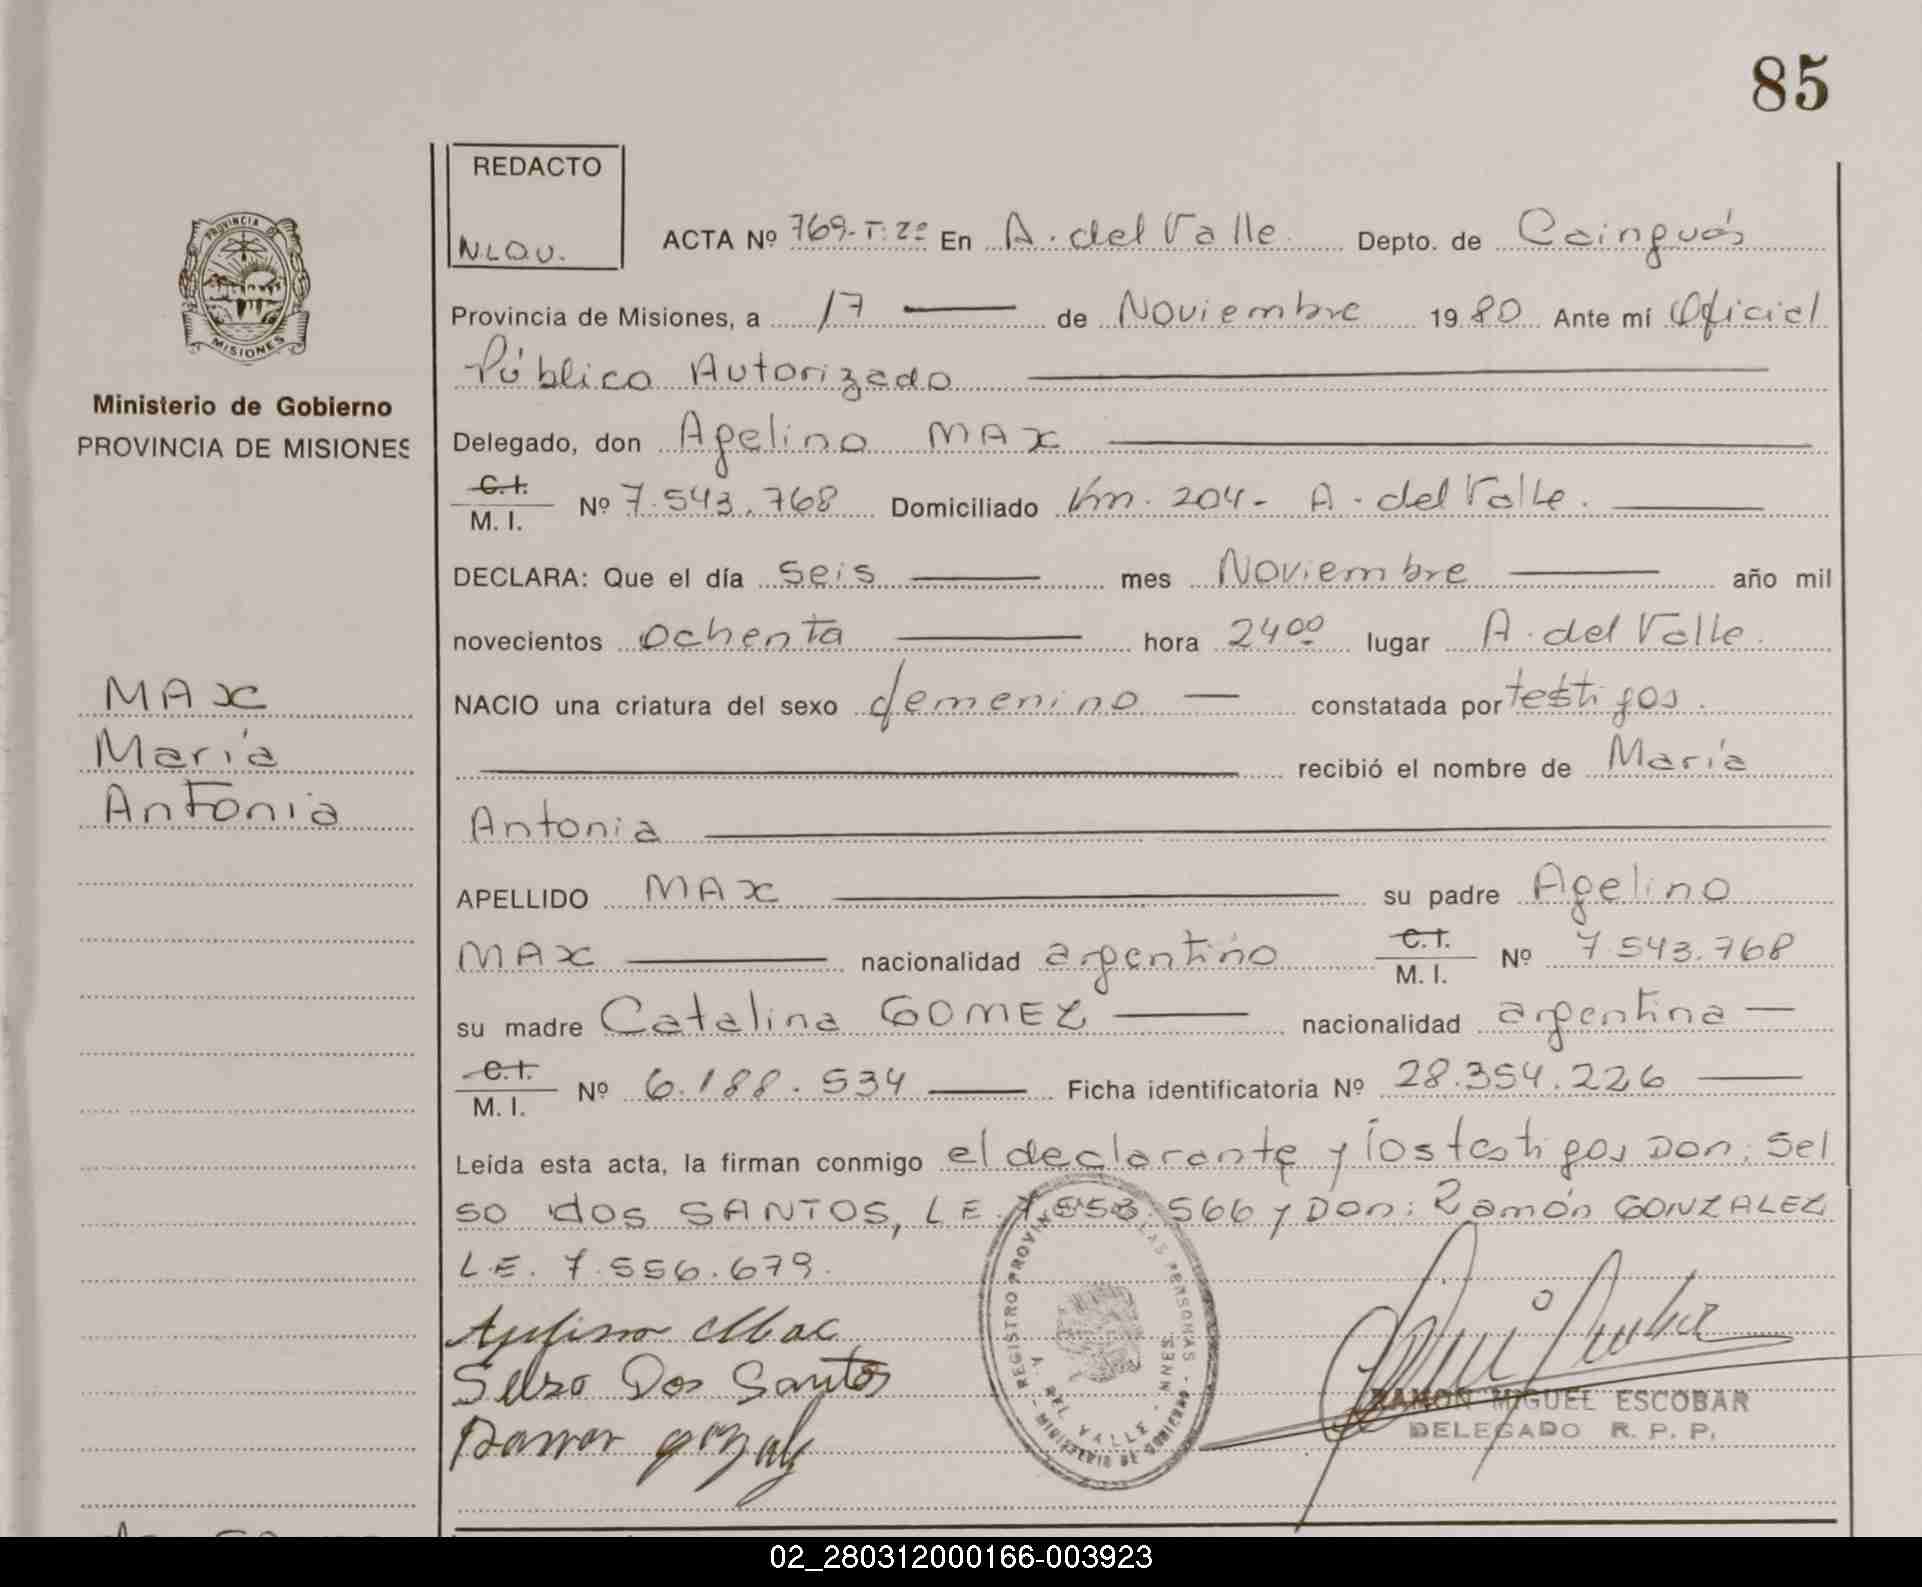 85
REDACTO
N.L.O.U.
ACTA Nº 769-T:2º En A. del Valle Depto. de Cainguás
Provincia de Misiones, a 17 de Noviembre 1980 Ante mí Oficial
Público Autorizado
Delegado, don Agelino MAX
C.I. M. I. Nº 7.543.768 Domiciliado Km. 204- A. del Valle.
DECLARA: Que el día seis mes Noviembre año mil
novecientos ochenta hora 24 00 lugar A. del Valle.
NACIO una criatura del sexo femenino constatada por testigos.
recibió el nombre de María
Antonia
APELLIDO MAX su padre Agelino
MAX nacionalidad argentino C.I. M. I. Nº 7.543.768
su madre Catalina GOMEZ nacionalidad argentina
C.I. M. I. Nº 6.188.534 Ficha identificatoria Nº 28.354.226
Leída esta acta, la firman conmigo el declarante y los testigos Don: Sel
so dos SANTOS, L E. 566 y Don: Ramón GONZALEZ
L.E. 7.556.679.
Selso Dos Santos
Ramon
PROVINCIA DE
MISIONES
Ministerio de Gobierno
PROVINCIA DE MISIONES
MAX
María
Antonia
REGISTRO PROVIN LAS PERSONAS
A. DEL VALLE - MNES.
MINISTERIO DE GOBIERNO
RAMON MIGUEL ESCOBAR
DELEGADO R. P. P.
02_280312000166-003923